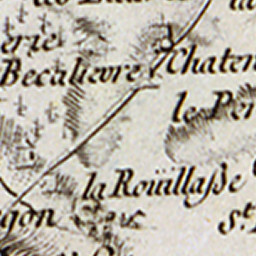 erie
Becalievre
Chaten
le Per
la Roüillaſse
gon
S.t